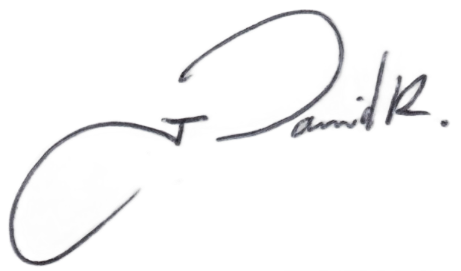 J David R.